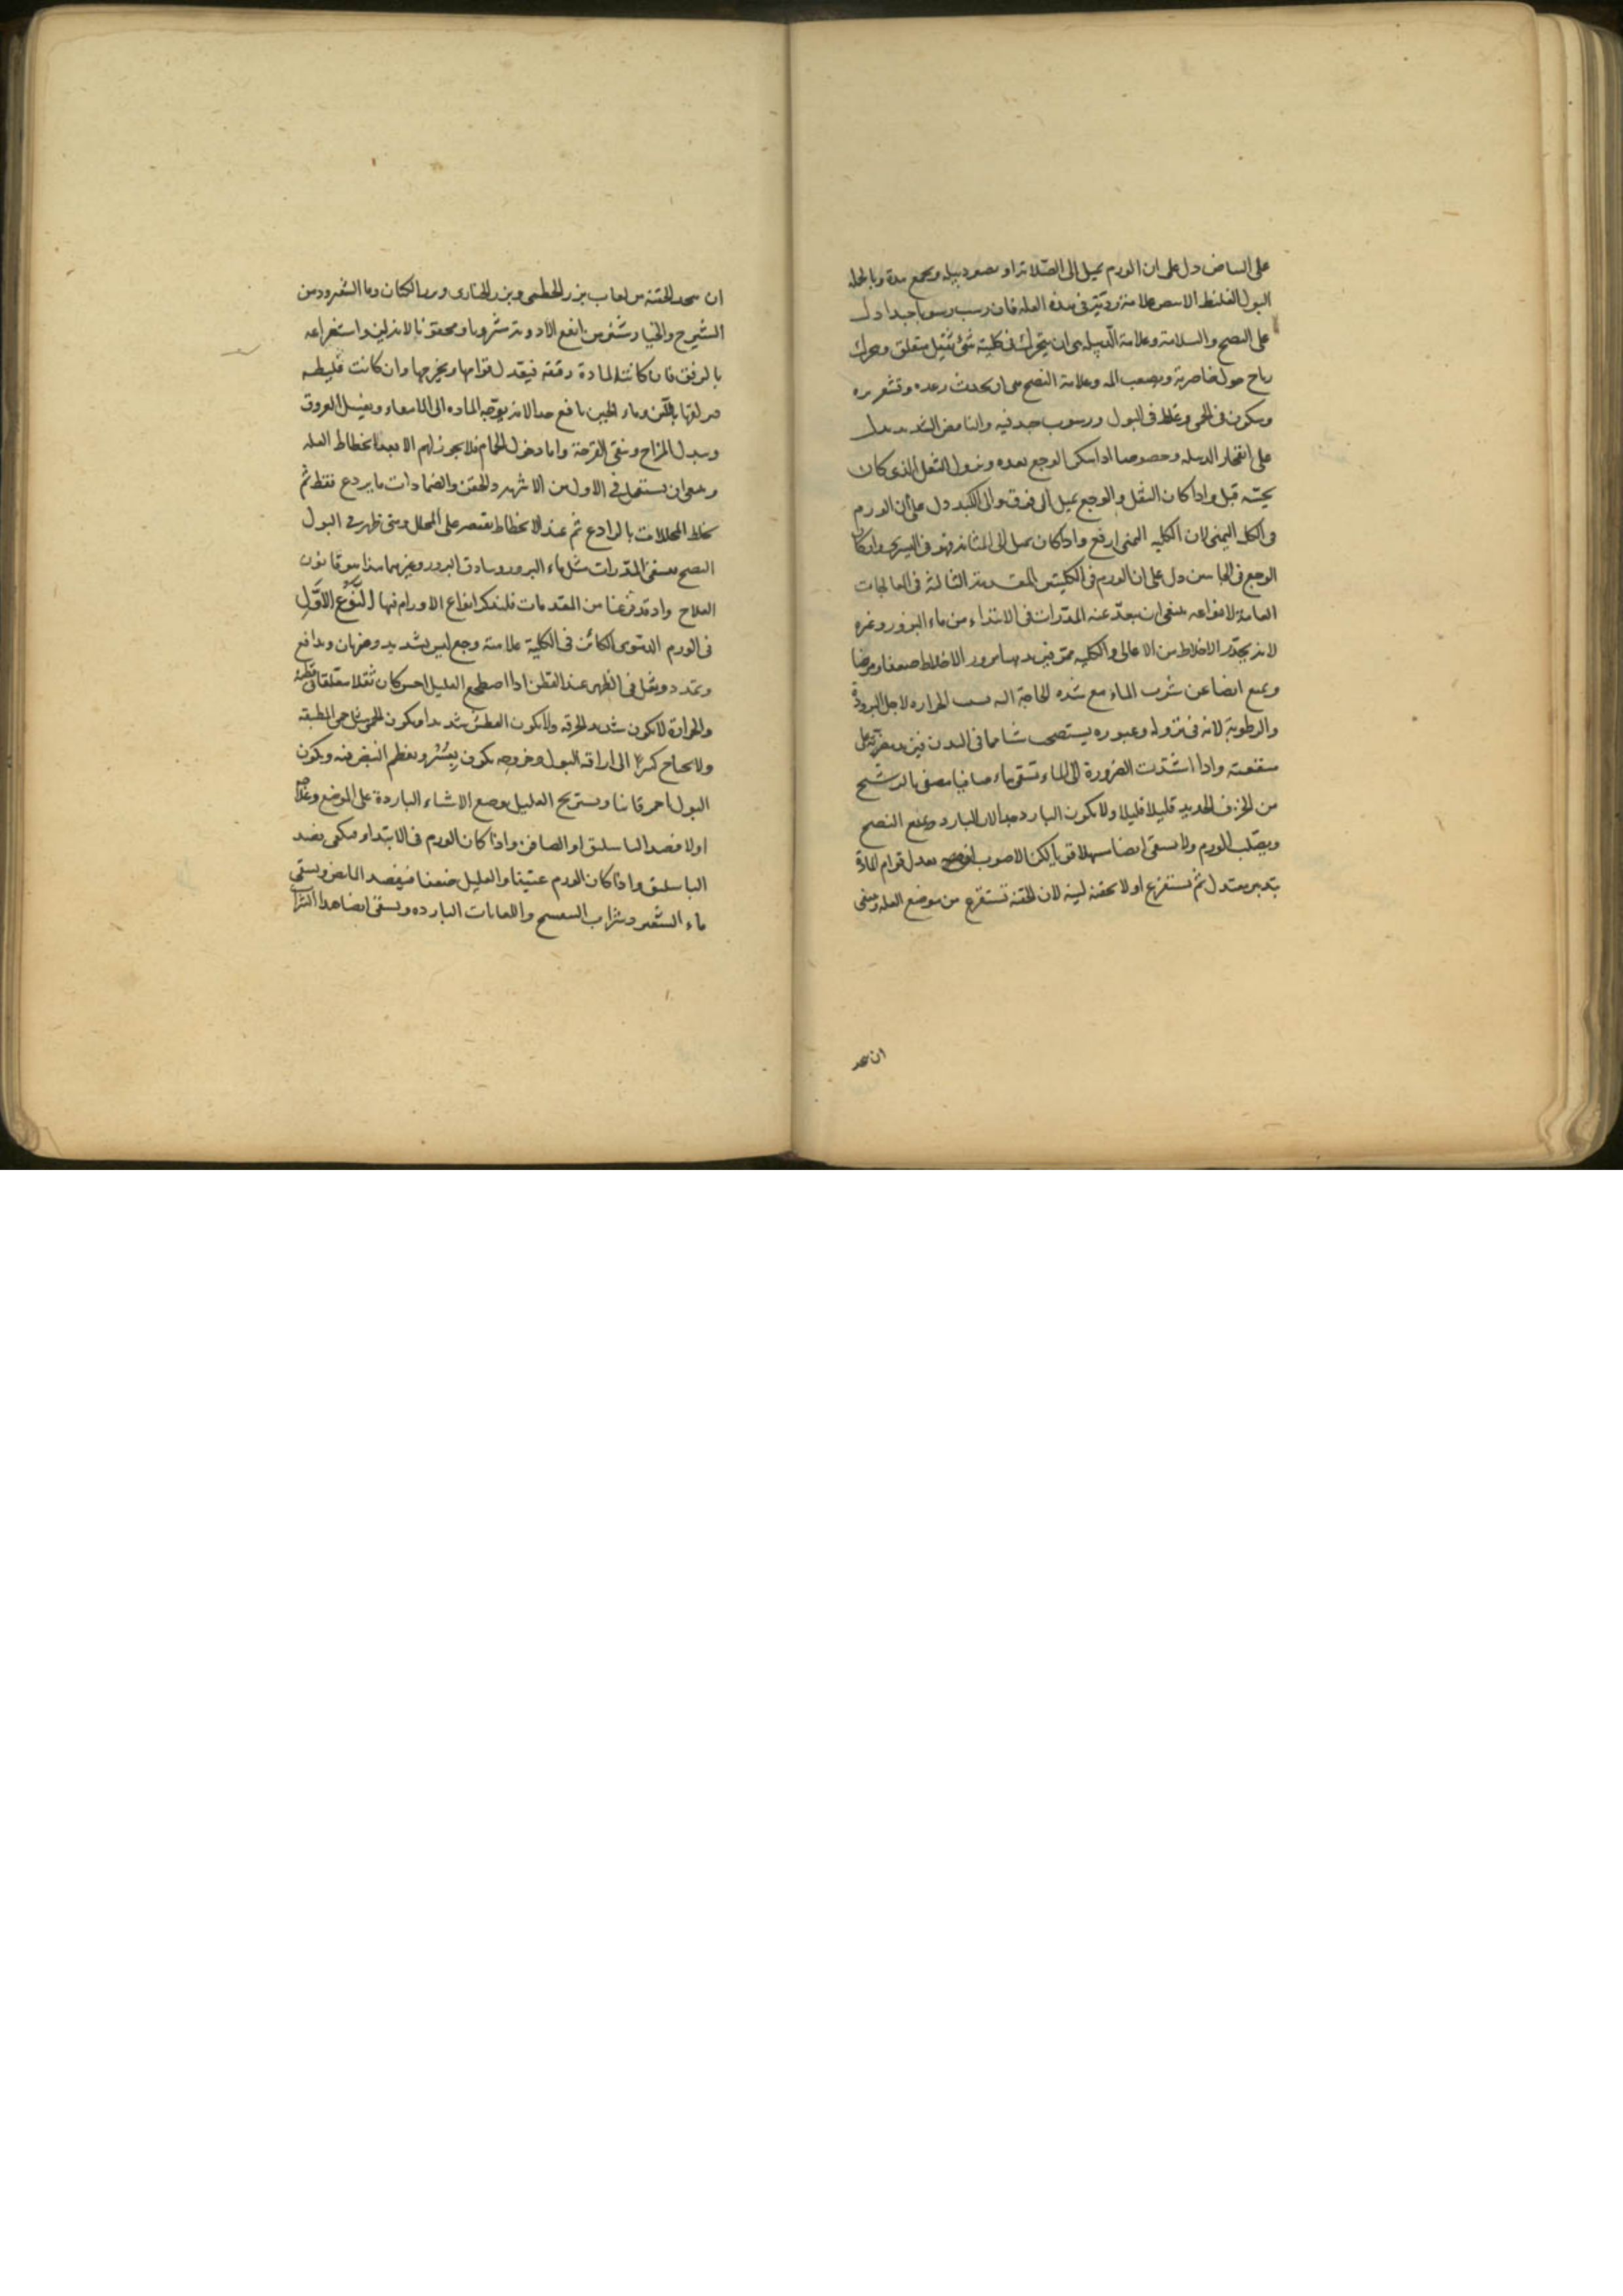 على البياض دل على ان الورم يميل الى الصلابة او يصير دبيله ويجمع مدة وبالجمله
البول الغليظ الابيض علامة رديّة في هذه العله فان رسب رسوبا جيدا دل
على النضج والسلامة وعلامة الدبيله هى ان يتحرك في كليته شئ ثقيل متعلق ويتحرك
رياح حول خاصرته ويصعب الم وعلامة النضج هى ان يحدث رعده وقشعريره
ويكون في الحمى وغلظ في البول ورسوب جيد فيه والنافض الشديد يدل
على انفجار الدبيله وخصوصا اذا سكن الوجع بعده ونزول الثقل الذى كان
يحسّه قبل واذا كان الثقل والوجع يميل الى فوق والى الكبد دل على ان الورم
في الكلية اليمنى لان الكليه اليمنى ارفع واذا كان يميل الى المثانة فهو في اليسرى وان كان
الوجع في الجانبين دل على ان الورم في الكليتين المقدمة الثالثة في المعالجات
العامة لانواعه ينبغى ان يبعد عنه المدرات في الابتداء من ماء البزور وغيره
لانه يجدر الاخلاط من الاعالى والكليه فيزيدها مرور الاخلاط ضعفا ومرضا
ويمنع ايضا عن شرب الماء مع شده الحاجة اليه بسبب الحراره لاجل البرودة
والرطوبة لانه في نزوله وعبوره يستصحب شيا مما في البدن فيزيد مضرته على
منفعته واذا اشتدت الضرورة الى الماء تسقى ماء صافيا مصفى بالترشيح
من الخزف الجديد قليلا قليلا ولا يكون البارد جدا لان البارد يمنع النضج
ويصلّب الورم ولا يسقى ايضا مسهلا قويا لكن الاصوب ان يعدل قوام المادة
بتدبير معتدل ثم يستفرغ اولا بحقنه لينه لان الحقنة تستفرغ من موضع العله وينبغى
ان يتخذ
ان يتخذ الحقنة من لعاب بزر الخطمى وبزر الخبازى وبزر الكتان وماء الشعير ودهن
الشيرج والخيارشنبر من انفع الادوية مشروبا ومحقونا لانه يلين واستفراغه
بالرفق فان كانت المادة رقيقه فيعدل قوامها ويخرجها وان كانت غليظه
باللبن وماء الجبن نافع جدا لانه يوجه الماده الى الامعاء ويغسل العروق
ويبدل المزاج وينقى القرحة واما دخول الحمام فلا يجوز لهم الا بعد انحطاط العله
وينبغى ان يستعمل في الاول من الاشربه والحقن والضمادات ما يردع فقط ثم
يخلط المحللات بالرادع ثم عند الانحطاط يقتصر على المحلل ومتى ظهر في البول
النضج يسقى المدرات مثل ماء البزور وسادق البزور وغيرهما هذا هو قانون
العلاج واذ قد فرغنا من المقدمات فلنذكر انواع الاورام فيها النوع الاول
في الورم الدموى الكائن في الكلية علامته وجع ليس بشديد وضربان وتدافع
وتمدد وثقل في الظهر عند القطن اذا اضطجع العليل احس كان ثقلا متعلقا في قطنه
والحرارة لا يكون شديد الحرقه ولا يكون العطش شديدا ويكون الحمى مثل حمى المطبقه
ولا يحتاج كثيرا الى اراقه البول وخروجه يكون بعُسْر ويعظم النبض فيه ويكون
البول احمر قانيا ويستريح العليل بوضع الاشياء الباردة على الموضع وعلاجه
اولا فصد الباسليق او الصافن واذا كان الورم في الابتداء فيكفى فصد
الباسليق واذا كان الورم عتيقا والعليل ضعيفا فيفصد المابض ويسقى
ماء الشعير وشراب البنفسج واللعابات البارده ويسقى ايضا هذا الشراب